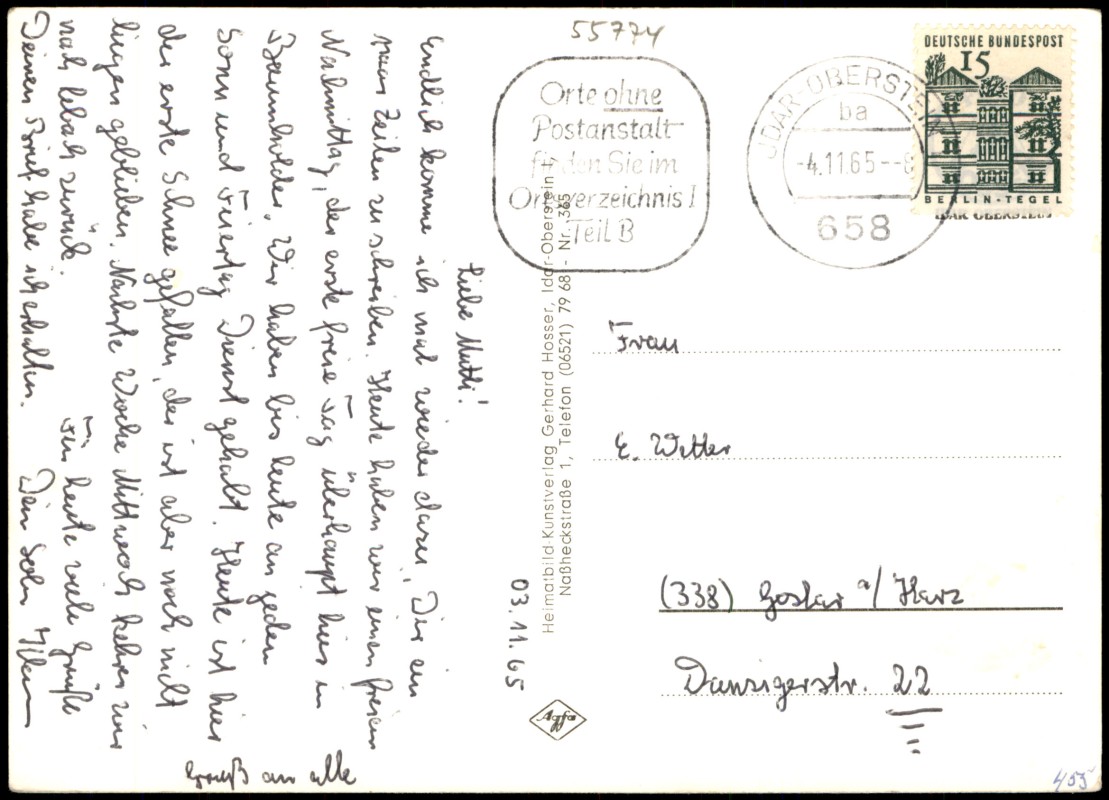 55774
Orte ohne
Postanstalt
finden Sie im
Ortsverzeichnis I
Teil B
IDAR-OBERSTEIN
ba
-4.11.65--8
658
DEUTSCHE BUNDESPOST
15
BERLIN-TEGEL
IDAR OBERSTEIN
03.11.65
Liebe Mutti!
Endlich komme ich mal wieder dazu, Dir ein
paar Zeilen zu schreiben. Heute haben wir einen freien
Nachmittag, der erste freie Tag überhaupt hier in
Baumholder. Wir haben bis heute an jeden
Sonn und Feiertag Dienst gehabt. Heute ist hier
der erste Schnee gefallen, der ist aber noch nicht
liegen geblieben. Nächste Woche Mittwoch kehren wir
nach lebach zurück.
Für heute viele Grüße
Deinen Brief habe ich erhalten. Dein Sohn
Gruß an alle
Heimatbild-Kunstverlag Gerhard Hosser, Idar-Oberstein
Naßheckstraße 1, Telefon (06521) 79 68 - Nr. 365
Agfa
Frau
E. Witter
(338) Goslar a/Harz
Danzigerstr. 22
455